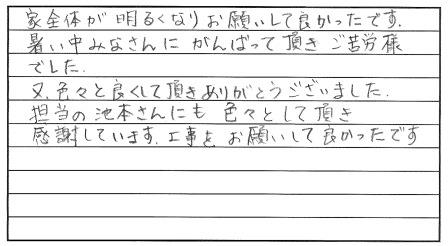 家全体が明るくなりお願いして良かったです.
暑い中みなさんに がんばって頂き ご苦労様
でした.
又、色々と良くして頂きありがとうございました.
担当の池本さんにも 色々として頂き
感謝しています.工事を お願いして良かったです